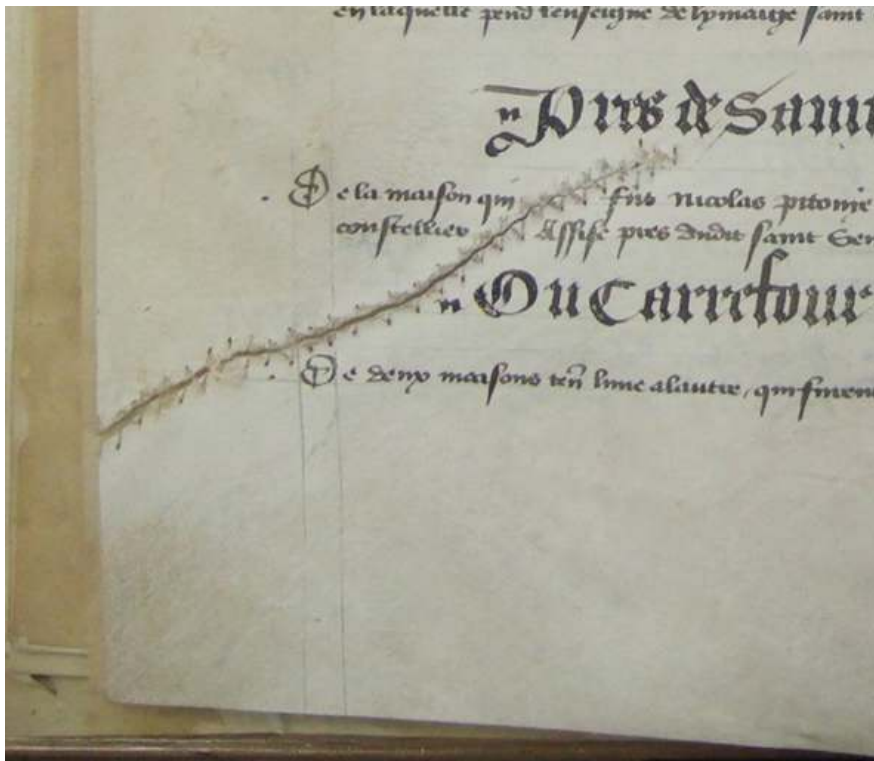 en laquelle pend lenseigne de lymaige saint
Pres de Saint
De la maison qui fut Nicolas pitome
constellier Assise pres dudit saint Ser
Ou Carrefour
De deux maisons ten lune alautre, qui furent